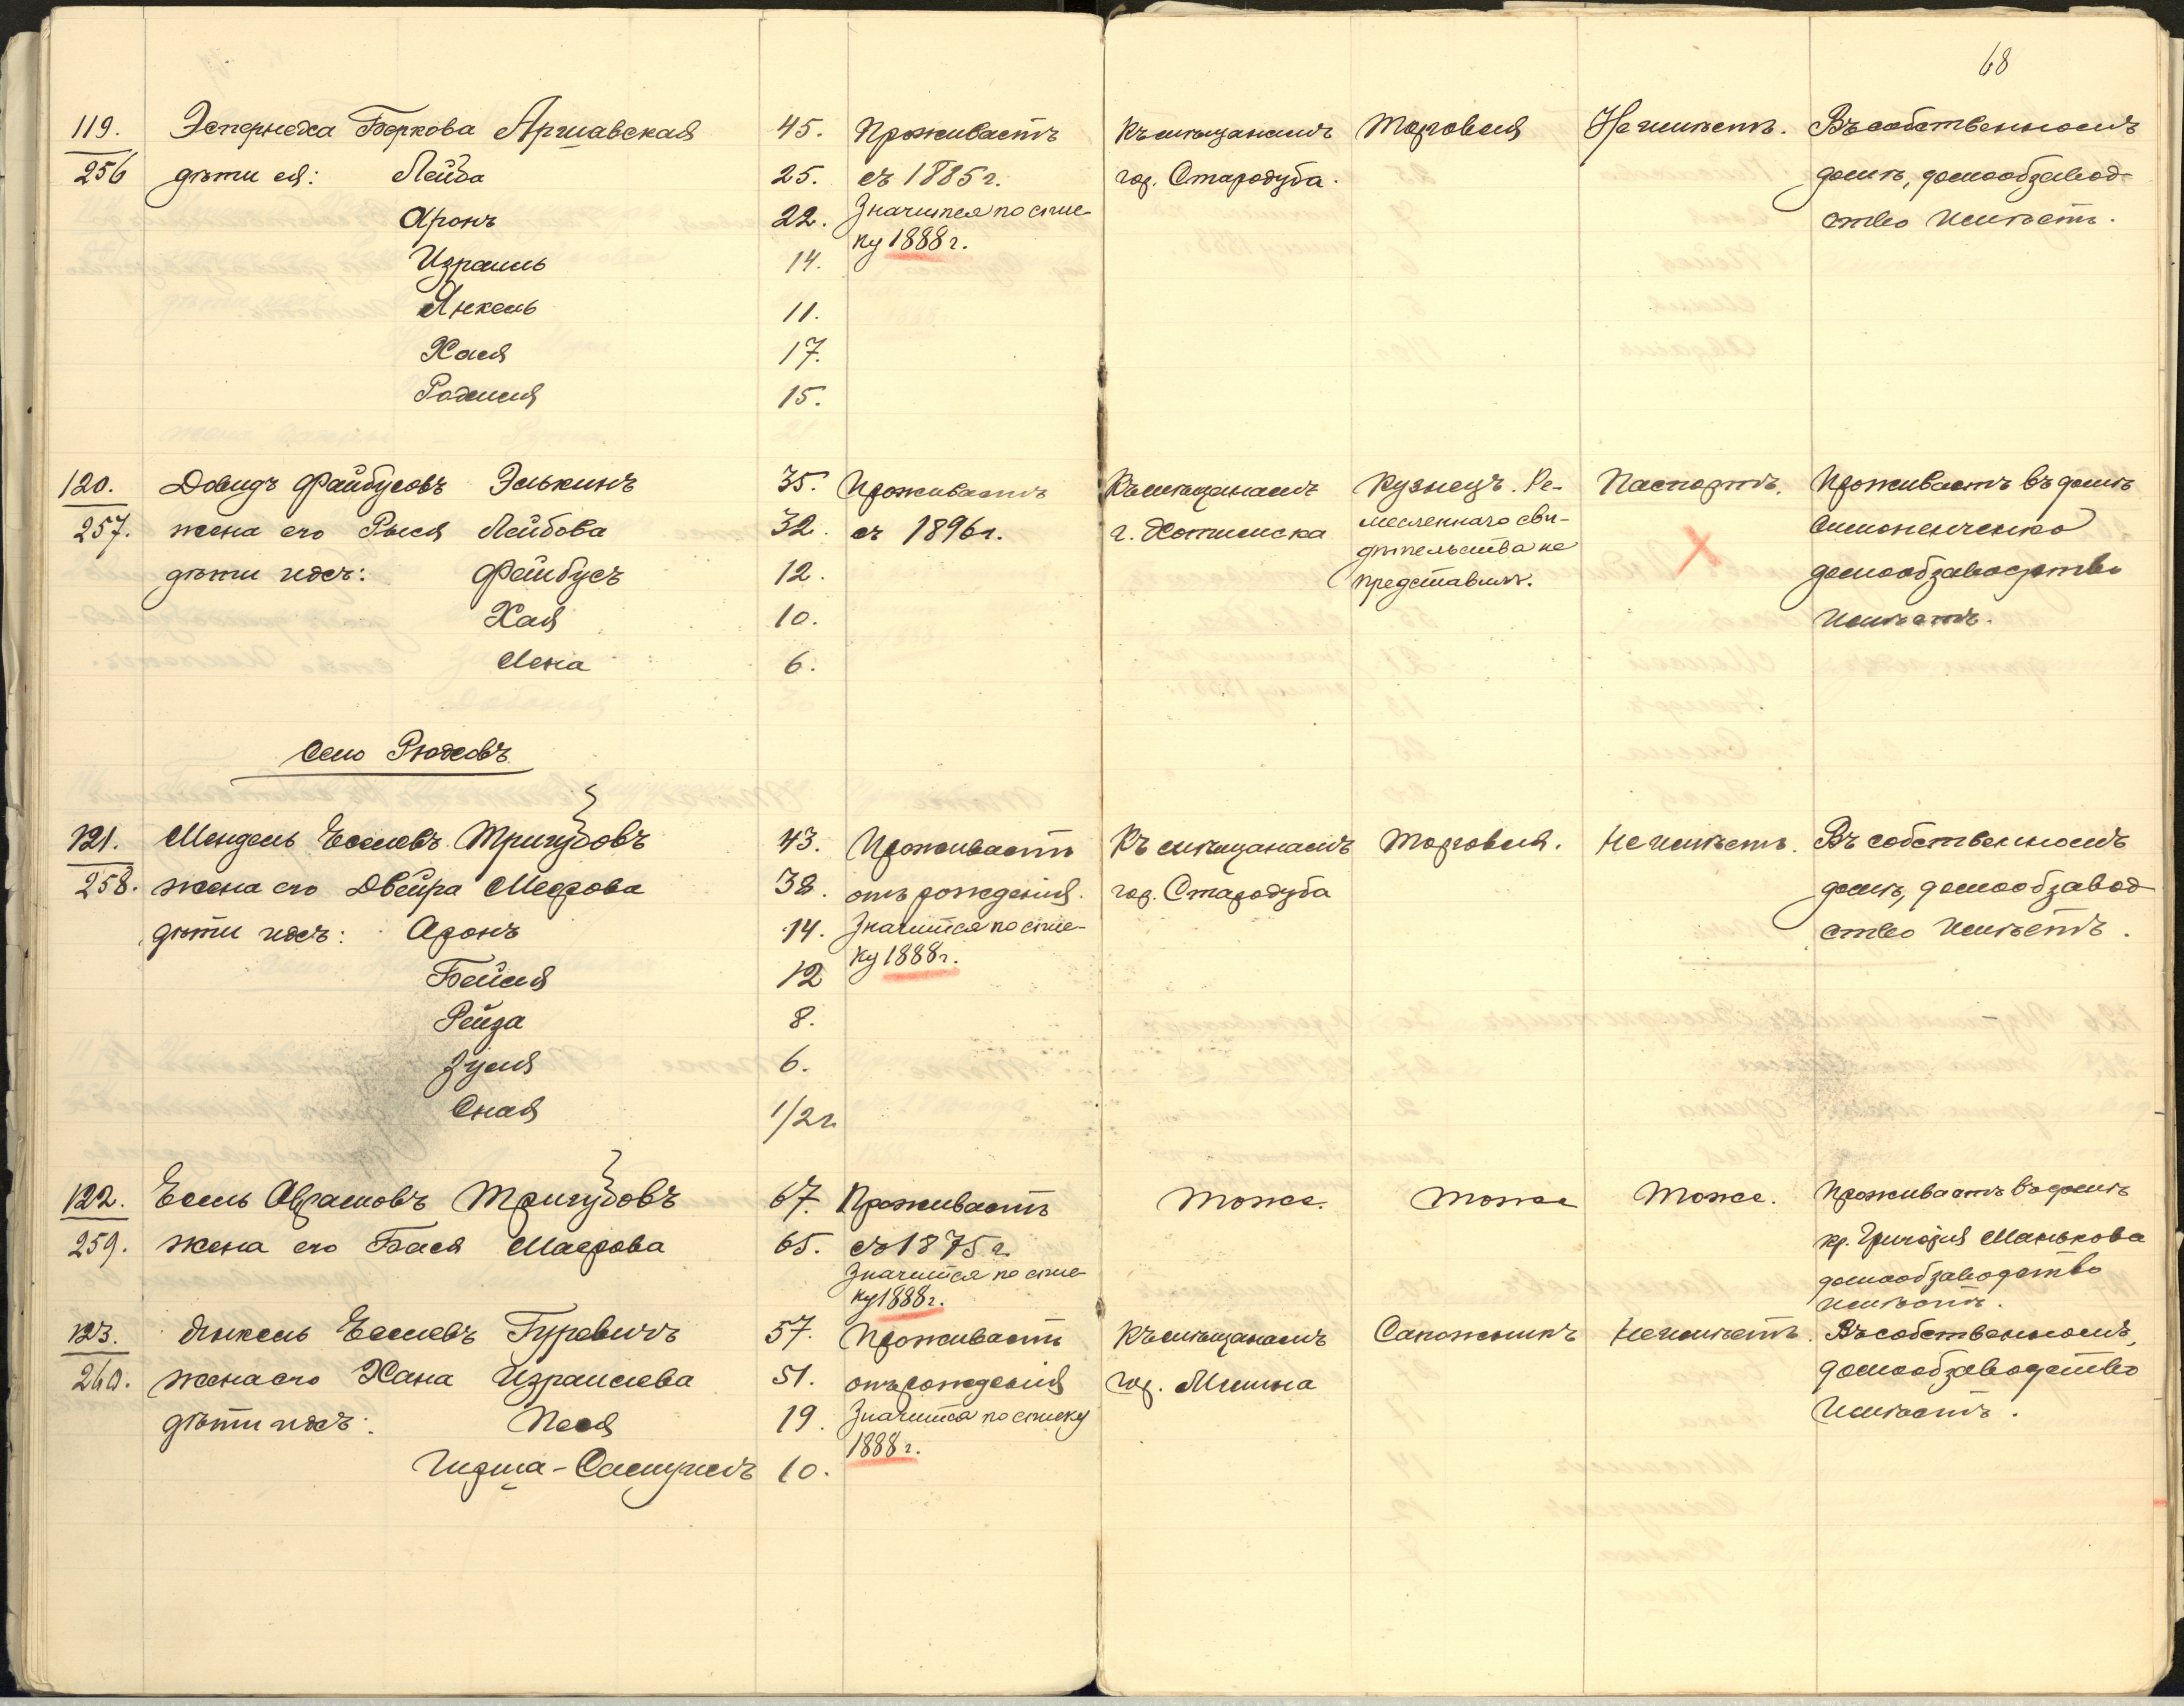 68
119. Эстернеха Беркова Аршавская 45. Проживаетъ Къ мѣщанамъ Торговля Не имѣетъ. Въ собственномъ
256 дѣти ея: Лейба 25. съ 1885 г. гор. Стародуба. домѣ, домообзавод-
Аронъ 22. Значится по спис- ство имѣетъ.
Израиль 14. ку 1888 г.
Янкель 11.
Хася 17.
15.
120. Довидъ Файбусовъ Элькинъ 35. Проживаетъ Къ мѣщанамъ Кузнецъ. Ре- Паспортъ. Проживаетъ въ домѣ
257. жена его Рыся Лейбова 32. съ 1896 г. г. Хотимска месленнаго сви-
дѣти ихъ: Фейбусъ 12. дѣтельства не домообзаводство
Хая 10. представилъ. имѣетъ.
Лена 6.
Село Рюховъ
121. Мендель Еселевъ Тригубовъ 43. Проживаетъ Къ мѣщанамъ Торговля. Не имѣетъ. Въ собственномъ
258. жена его Двейра Меерова 38. отъ рожденія. гор. Стародуба домѣ, домообзавод
дѣти ихъ: Аронъ 14. Значится по спис- ство имѣетъ.
Бейля 12 ку 1888 г.
Рейза 8.
Зуля 6.
1/2 г.
122. Есель Абрамовъ Тригубовъ 67. Проживаетъ тоже. тоже тоже. Проживаетъ въ домѣ
259. жена его Бася Маерова 65. съ 1875 г. кр. Григорія Манькова
Значится по спис- домообзаводство
ку 1888 г. имѣетъ.
123. Янкель Еселевъ Гуревичъ 57. Проживаетъ Къ мѣщанамъ Сапожникъ Не имѣетъ. Въ собственномъ,
260. жена его Хана Израилева 51. отъ рожденія гор. Мглина домообзаводство
дѣти ихъ: Песя 19. Значится по списку имѣетъ.
Гирша-Самуилъ 10. 1888 г.